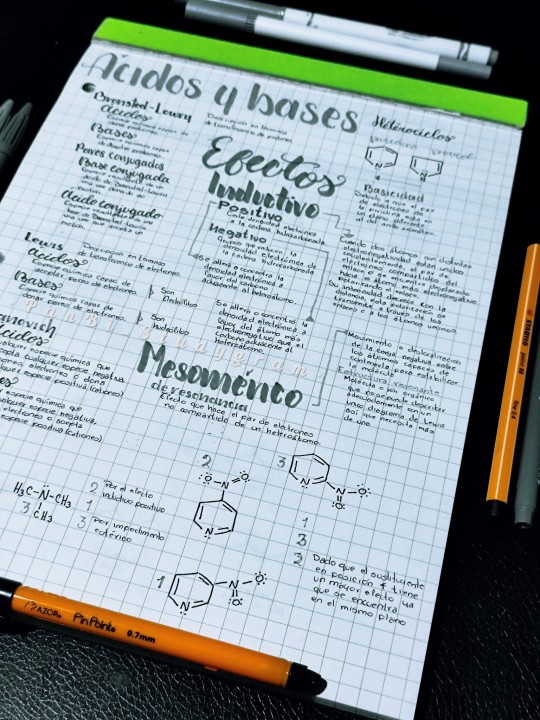 Ácidos y bases
Bronsted-Lowry
Descripción en términos
de transferencia de protones
ácidos
Especie química capaz de
donar protones.
Bases
Especie química capaz
de aceptar protones.
Pares conjugados
Base conjugada
Especie resultante de un
ácido de Bronsted-Lowry
Ácido conjugado
Especie resultante de una
base de Bronsted-Lowry
protón.
Lewis
Descripción en términos
de transferencia de electrones.
ácidos
Especie química capaz de
aceptar pares de electrones.
Bases
Especie química capaz de
donar pares de electrones.
Son
Son
Nucleófilos
especie química que
cualquier especie negativa
electrones o dona
especie positiva (cationes)
especie química que
especie negativa,
electrones o acepta
especie positiva (cationes)
Efectos
Inductivo
Positivo
Cede densidad electrónica
a la cadena hidrocarbonada.
Negativo
Grupos que reducen la
densidad electrónica de
la cadena hidrocarbonada
Se altera o concentra la
densidad electrónica a
favor del carbono
adyacente al heteroátomo.
Se altera o concentra la
densidad electrónica a
favor del átomo más
electronegativo que el
carbono adyacente al
heteroátomo.
Heterociclos
Basicidad
Debido a que el par
de electrones de
la piridina está en
un plano diferente
al del anillo aromático
Cuando dos átomos con distintas
electronegatividad están unidos
covalentemente, el par de
electrones compartido del
enlace se encuentra desplazado
hacia el átomo más electronegativo
polarizando el enlace.
Su intensidad decrece con la
distancia, esta polarización se
transmite a través de los
enlaces a los átomos vecinos
PanBy_Studygram
Mesomérico
de resonancia
Efecto que hace el par de electrones
no compartido de un heteroátomo.
Movimiento o deslocalización
de la carga negativa entre
los átomos capaces de
contenerla para estabilizar
la molécula
Estructura resonante
Molécula o ion orgánico
que no se puede describir
adecuadamente con un
única diagrama de Lewis
así que necesita más
de uno
H₃C-N̈-CH₃
CH₃
3
2 Por el efecto
inductivo positivo
1
3 Por impedimento
estérico
2
:O-N=O:
N
3
N
N-O:
:O:
1
N
N-O:
:O:
1
3
2 Dado que el sustituyente
en posición 4 tiene
un mayor efecto ya
que se encuentra
en el mismo plano
AZOR® Pin Point® 0.7mm
STABILO
point 88
fine 0,4